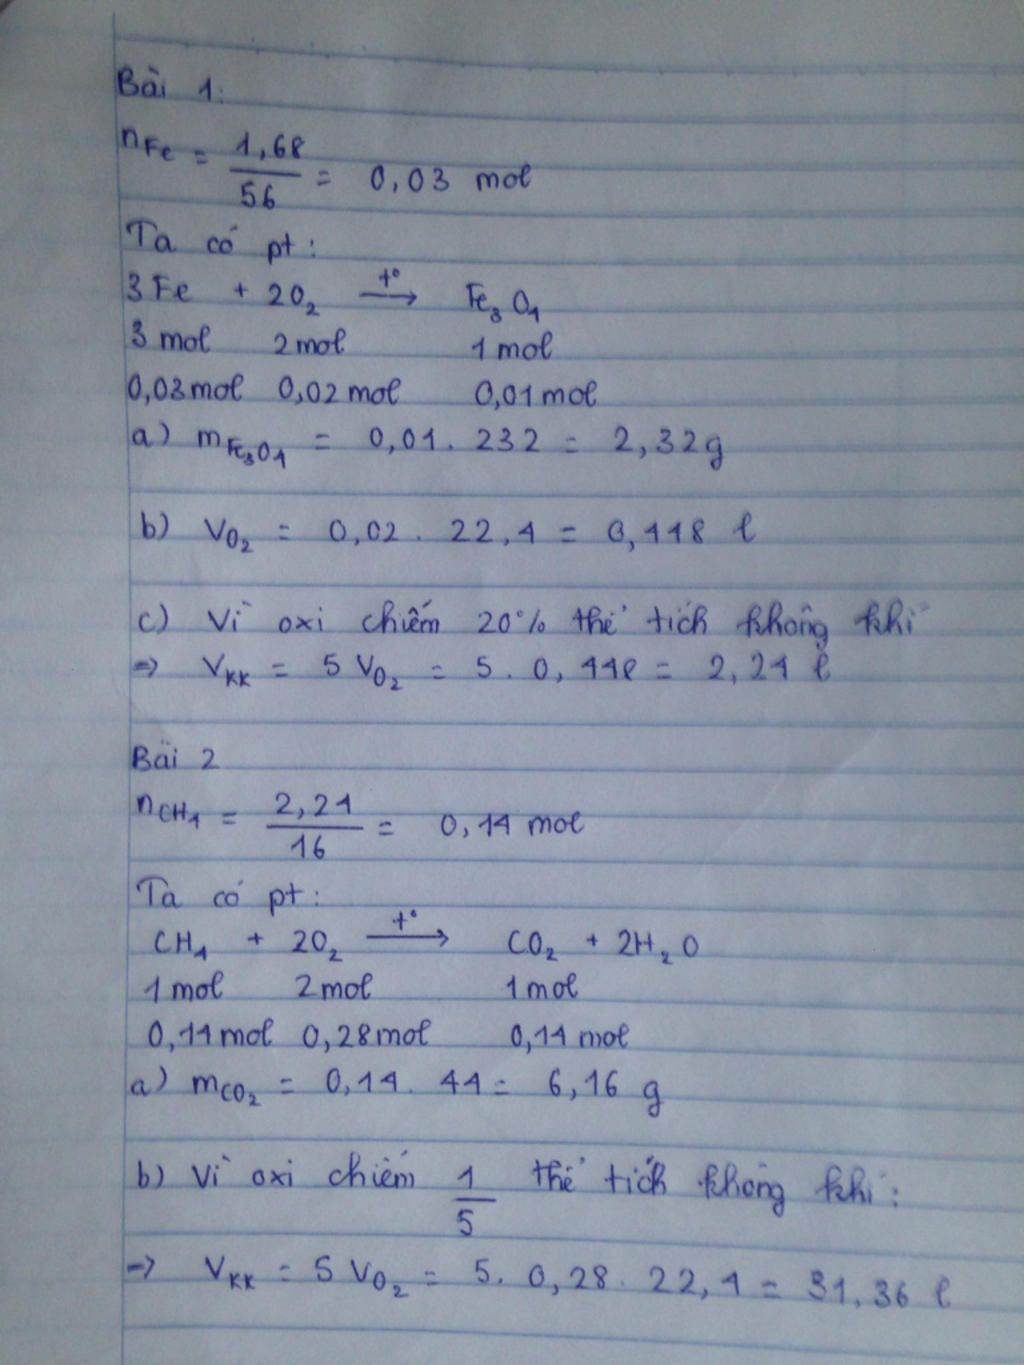 Bài 1:
nFe = 1,68/56 = 0,03 mol
Ta có pt:
3Fe + 2O₂ –t°→ Fe₃O₄
3 mol 2mol 1 mol
0,03mol 0,02mol 0,01mol
a) mFe₃O₄ = 0,01 . 232 = 2,32g
b) VO₂ = 0,02 . 22,4 = 0,448 l
c) Vì oxi chiếm 20% thể tích không khí
=> VKK = 5 VO₂ = 5 . 0,448 = 2,24 l
Bài 2
nCH₄ = 2,24/16 = 0,14 mol
Ta có pt:
CH₄ + 2O₂ –t°→ CO₂ + 2H₂O
1mol 2mol 1mol
0,14mol 0,28mol 0,14mol
a) mCO₂ = 0,14 . 44 = 6,16 g
b) Vì oxi chiếm 1/5 thể tích không khí:
=> VKK = 5 VO₂ = 5 . 0,28 . 22,4 = 31,36 l